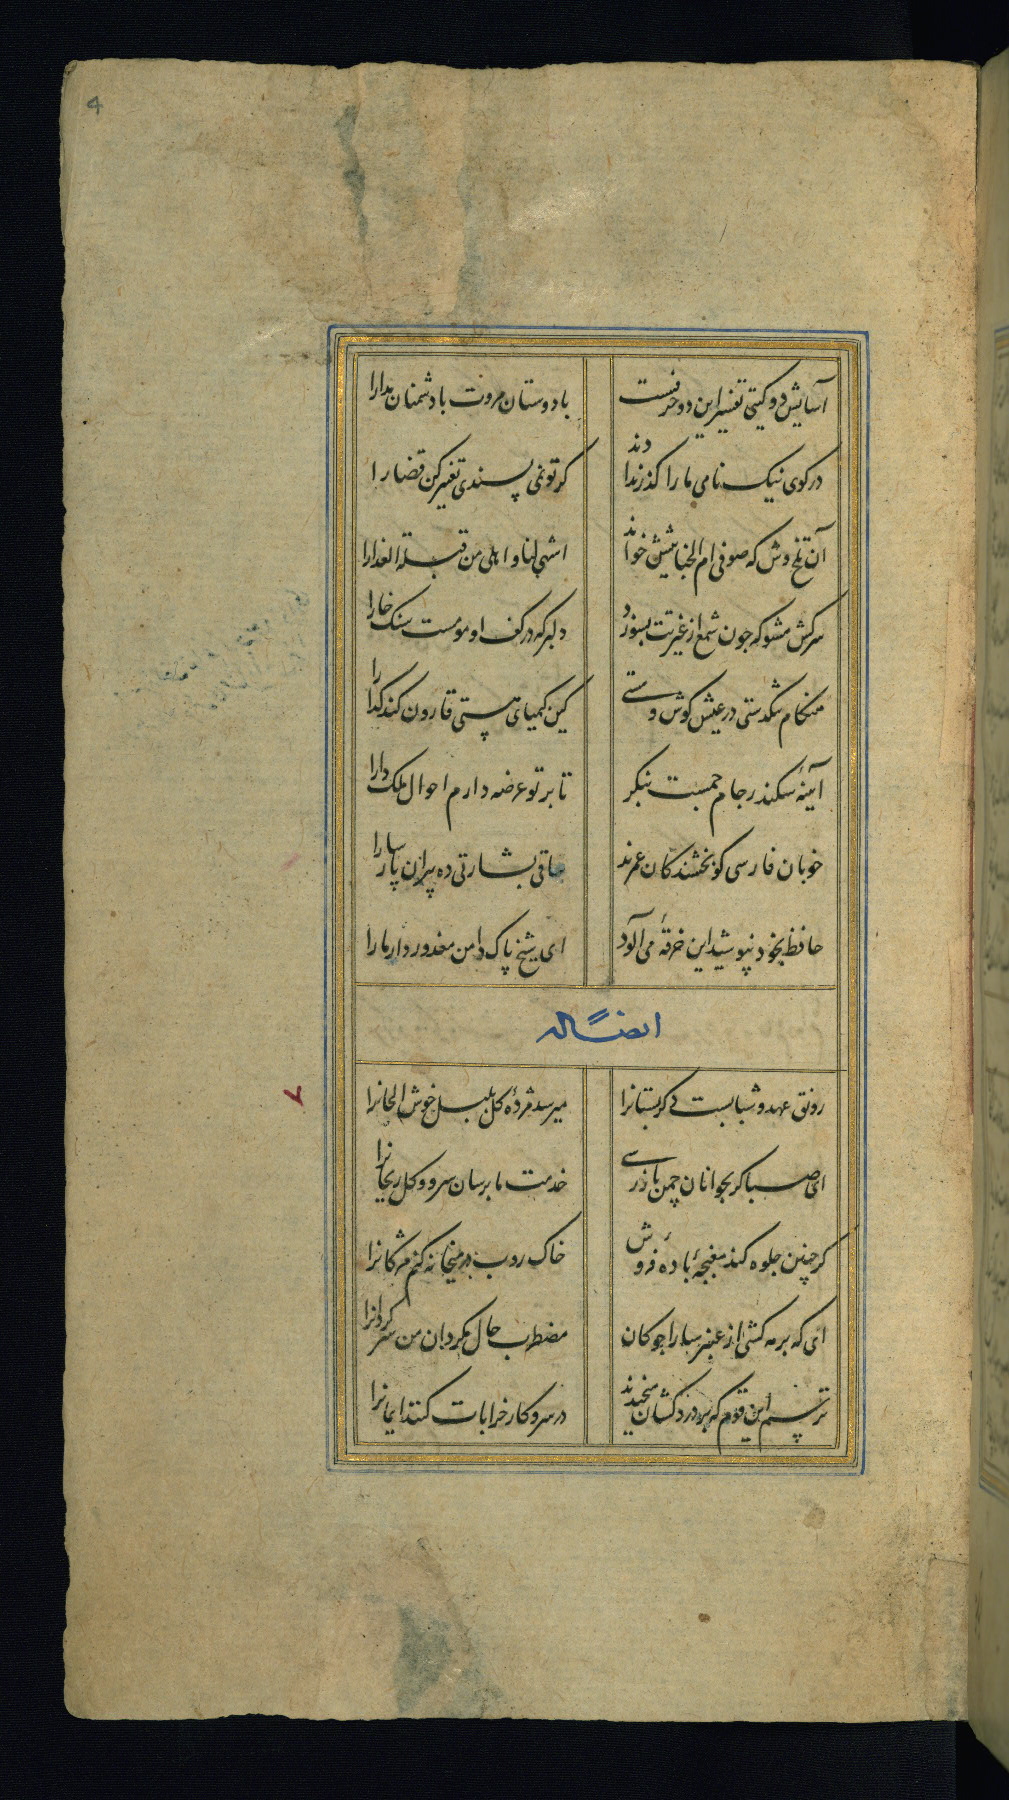 4
آسایش دو کیتی تفسیر این دو حرفست با دوستان مروت با دشمنان مدارا
در کوی نیک نامی ما را کذر ندادند کر تو نمی پسندی تغییر کن قضا را
آن تلخ وش که صوفی ام الخبایثش خواند اشهی لنا و احلی من قبلة العذارا
سرکش مشو که چون شمع از غیرتت بسوزد دلبر که در کف او مومست سنک خارا
هنکام تنکدستی در عیش کوش و مستی کین کیمیای هستی قارون کند کدا را
آینهٔ سکندر جام جمست بنکر تا بر تو عرضه دارم احوال ملک دارا
خوبان فارسی کو بخشندکان عمرند ساقی بشارتی ده پیران پارسا را
حافظ بخود نپوشید این خرقهٔ می آلود ای شیخ پاک دامن معذور دار ما را
ایضاً له
رونق عهد و شبابست دکر بستانرا میرسد مژدهٔ کل بلبل خوش الحانرا
ای صبا کر بجوانان چمن باز رسی خدمت ما برسان سرو و کل و ریحانرا
کر چنین جلوه کند مغبچهٔ باده فروش خاک روب در میخانه کنم مژکانرا
ای که بر مه کشی از عنبر سارا چوکان مضطرب حال مکردان من سرکردانرا
ترسم این قوم که بر درد کشان میخندند در سر و کار خرابات کنند ایمانرا
۷